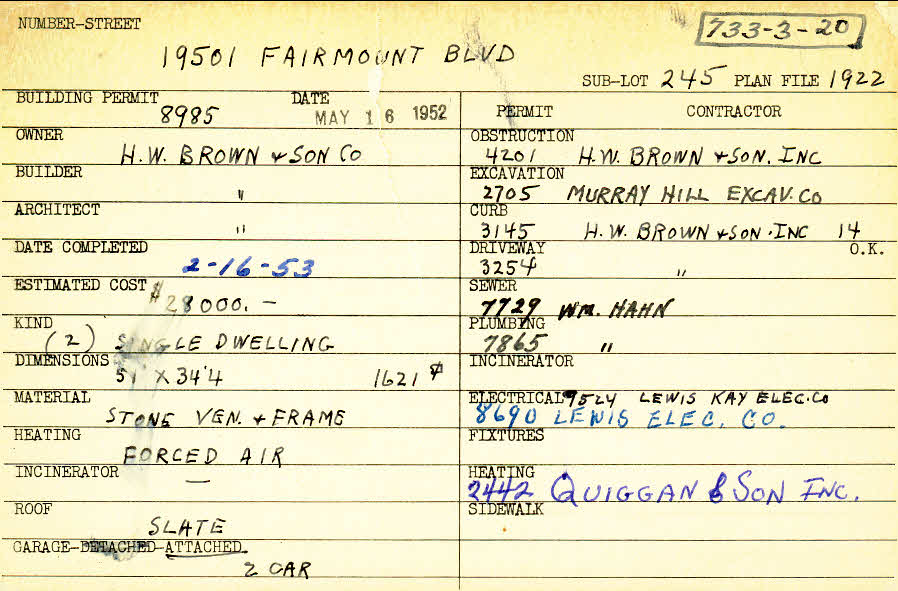 NUMBER-STREET
733-3-20
19501 FAIRMOUNT BLVD
SUB-LOT 245 PLAN FILE 1922
BUILDING PERMIT 8985 DATE MAY 16 1952
OWNER H.W. BROWN + SON CO
BUILDER "
ARCHITECT "
DATE COMPLETED 2-16-53
ESTIMATED COST $28000.-
KIND (2) SINGLE DWELLING
DIMENSIONS 51 X 34'4 1621
MATERIAL STONE VEN. + FRAME
HEATING FORCED AIR
INCINERATOR —
ROOF SLATE
GARAGE-DETACHED-ATTACHED
2 CAR
PERMIT CONTRACTOR
OBSTRUCTION
4201 H.W. BROWN + SON, INC
EXCAVATION
2705 MURRAY HILL EXCAV. CO
CURB
3145 H.W. BROWN + SON. INC 14
DRIVEWAY O.K.
3254 "
SEWER
7729 WM. HAHN
PLUMBING
7865 "
INCINERATOR
ELECTRICAL 9524 LEWIS KAY ELEC. CO
8690 LEWIS ELEC. CO.
FIXTURES
HEATING
2442 QUIGGAN & SON INC.
SIDEWALK